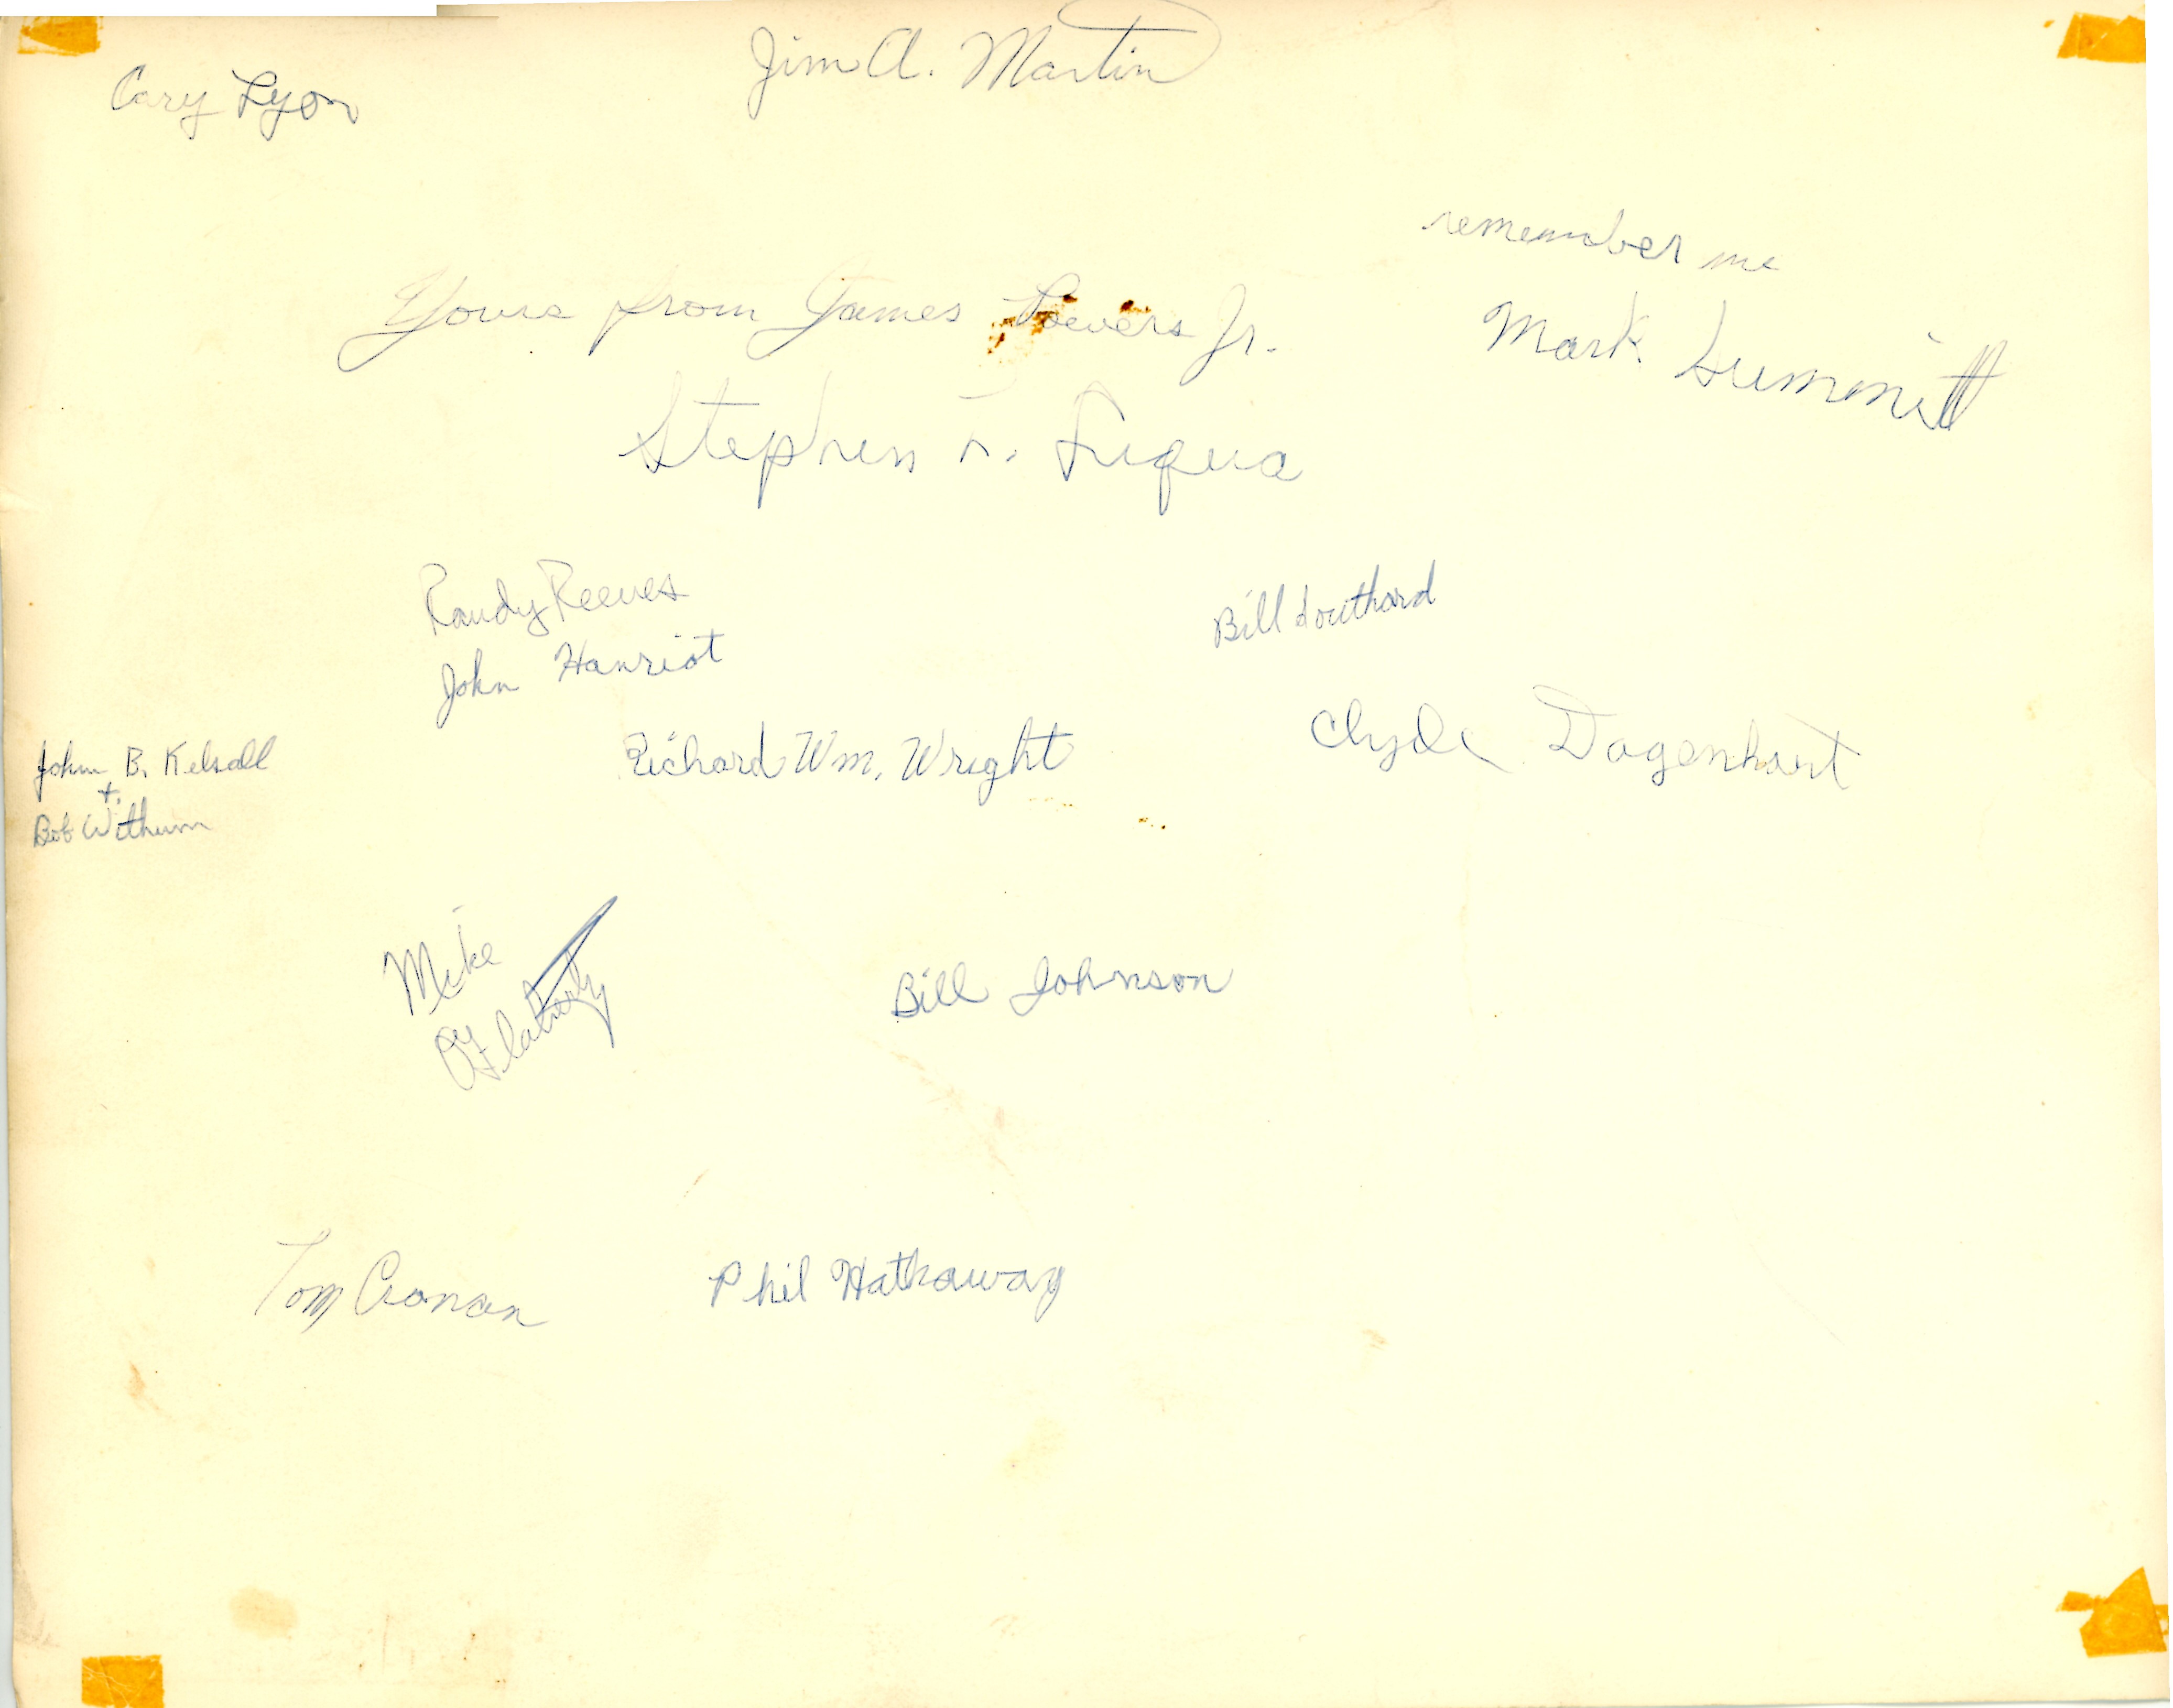 Jim A. Martin
Cary Lyon
remember me
Yours from James Powers Jr.
Mark Summitt
Stephen F. Fuqua
Randy Reeves
Bill Southard
John Hanriot
Clyde Dagenhart
Richard Wm. Wright
John B. Kelsall
+
Bob Withum
Mike
O'Flaherty
Bill Johnson
Tom Cronan
Phil Hathaway